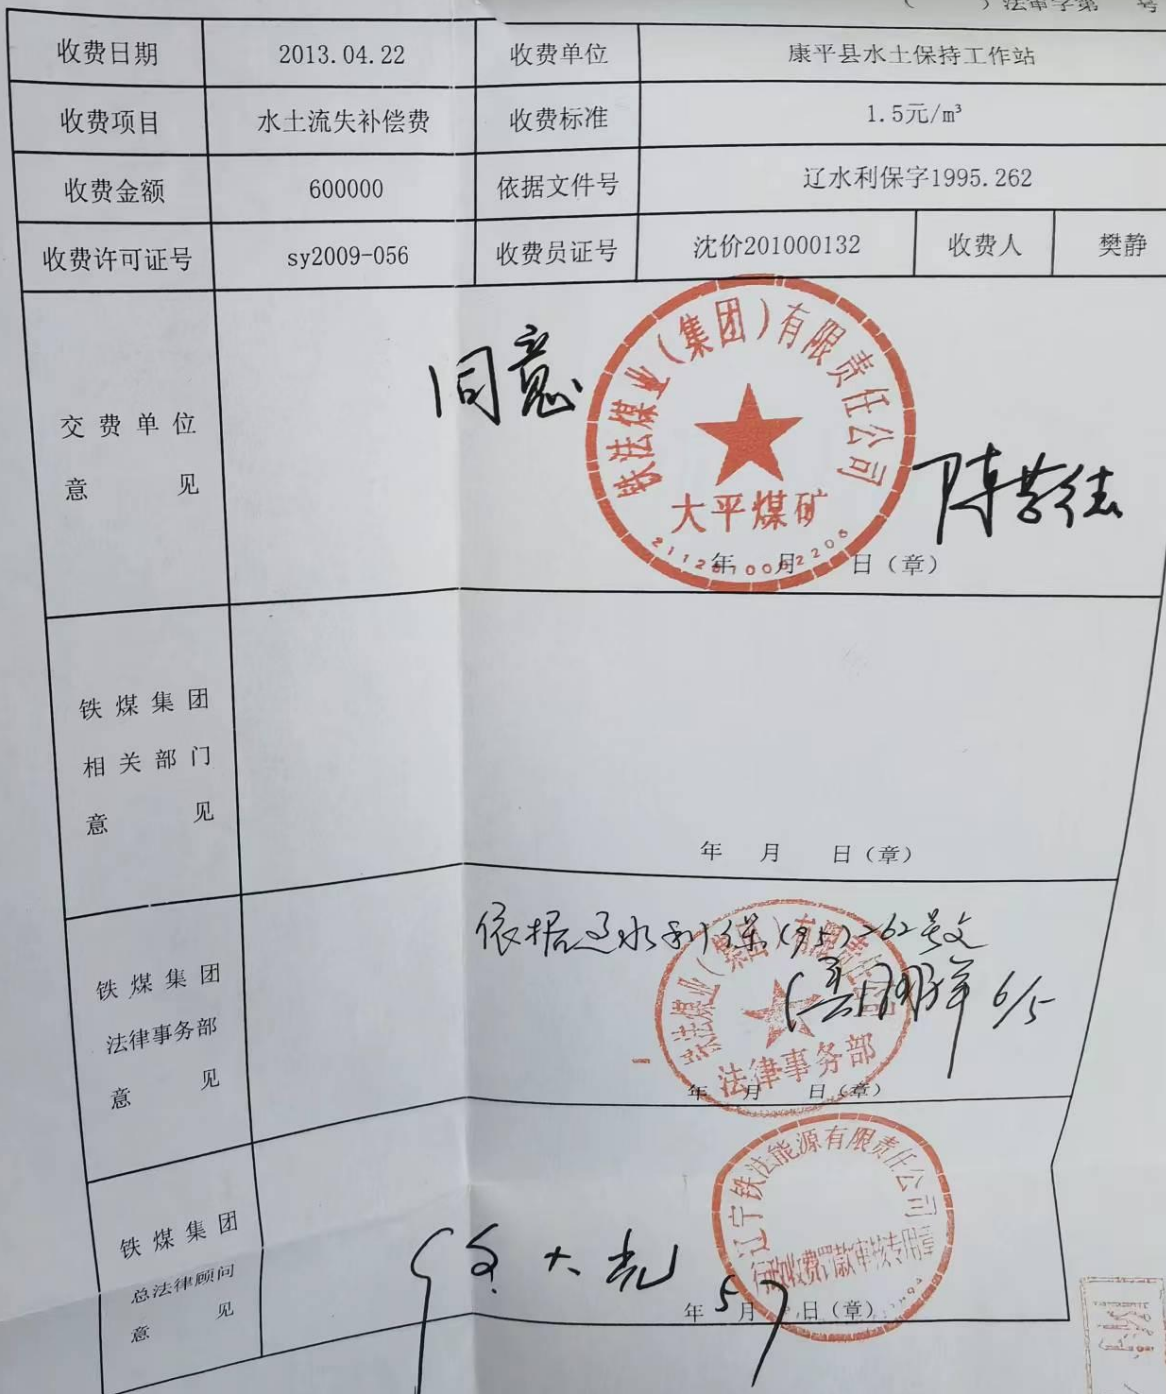 （ ）法审字第 号
收费日期 2013.04.22 收费单位 康平县水土保持工作站
收费项目 水土流失补偿费 收费标准 1.5元/m³
收费金额 600000 依据文件号 辽水利保字1995.262
收费许可证号 sy2009-056 收费员证号 沈价201000132 收费人 樊静
交费单位
意见
同意
铁法煤业（集团）有限责任公司
大平煤矿
年 月 日（章）
铁煤集团
相关部门
意见
年 月 日（章）
铁煤集团
法律事务部
意见
依据辽水利保（95）262号文
6/5
铁法煤业（集团）有限责任公司
法律事务部
年 月 日（章）
铁煤集团
总法律顾问
意见
大光
辽宁铁法能源有限责任公司
行政收费罚款审核专用章
年 5月 7日（章）